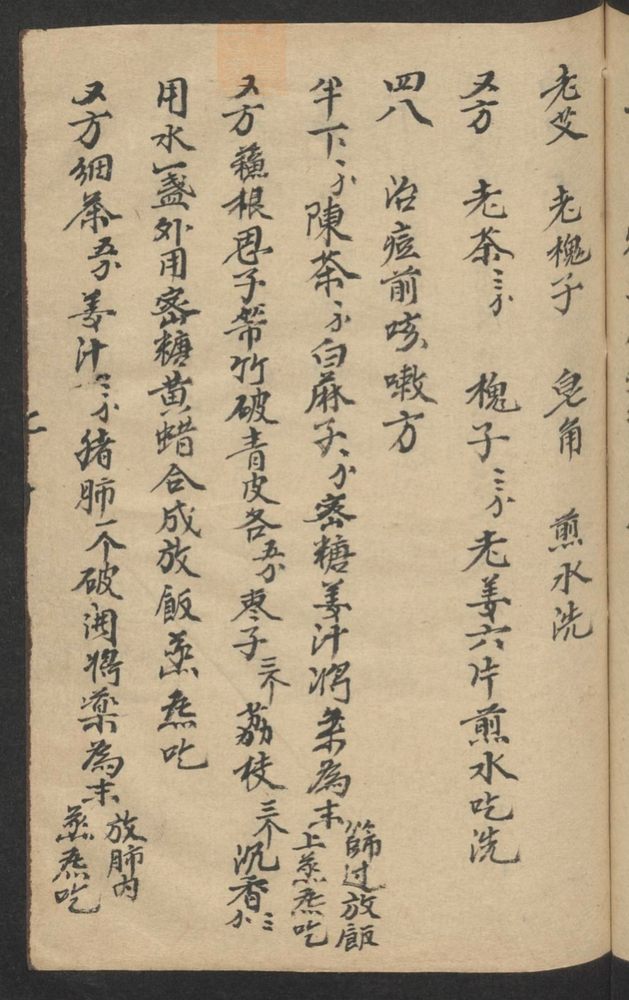 老艾 老槐子 皂角 煎水洗
又方 老茶三分 槐子三分 老姜六片煎水吃洗
四八 治痘前咳嗽方
半下二分陳茶二分白麻子二分宻糖姜汁将茶為末
篩过放飯
上蒸熟吃
又方蘓根思子箒竹破青皮各五分枣子三个荔枝三个沉香三分
用水一盏外用宻糖黄蜡合成放飯蒸熟吃
又方細茶五分姜汁三分猪肺一个破開将藥為末
放肺内
蒸熟吃